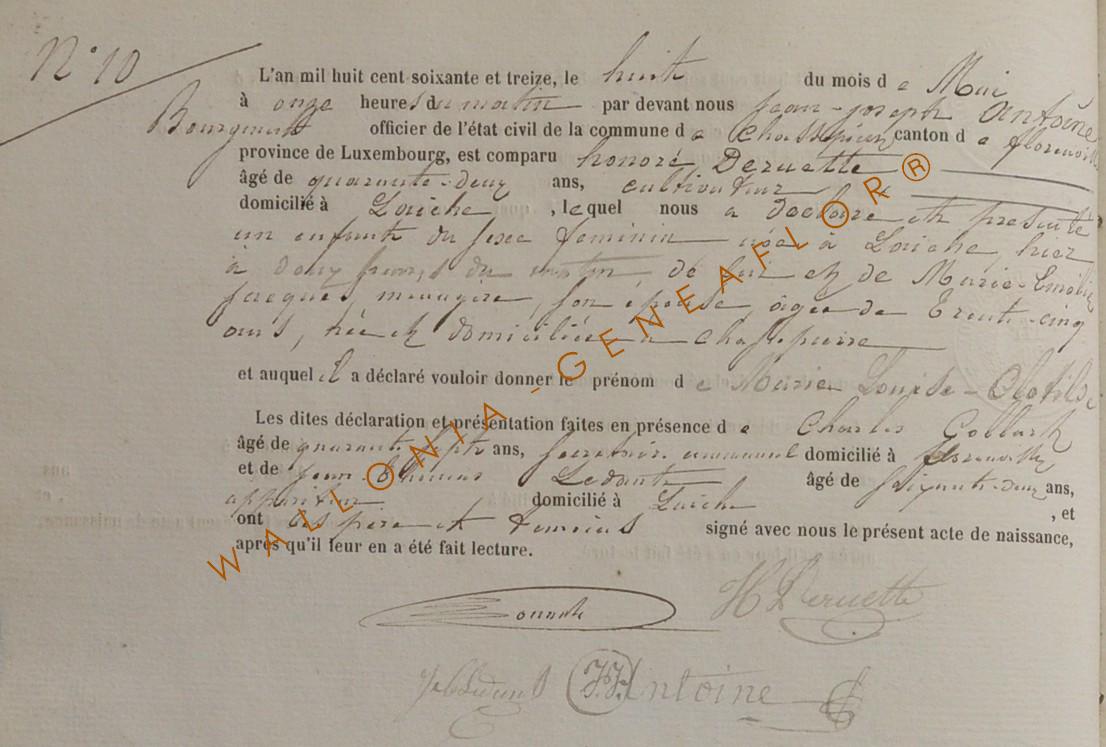 N° 10
L'an mil huit cent soixante et treize, le huit du mois d e Mai
à onze heures du matin par devant nous jean-joseph Antoine
Bourgmestre officier de l'état civil de la commune d e Chassepierre canton d e florenville
province de Luxembourg, est comparu honoré Deruette
âgé de quarante-deux ans, cultivateur
domicilié à Laiche, lequel nous a declaré et presenté
un enfant du sexe feminin née à Laiche, hier
à deux heures du matin de lui et de Marie-Emélie
jacques, menagère, son épouse, âgée de trente-cinq
ans, née et domiciliée à Chassepierre
et auquel il a déclaré vouloir donner le prénom d e Marie Louise-Clotilde
Les dites déclaration et présentation faites en présence d e Charles
âgé de quarante sept ans, secretaire communal domicilié à florenville
et de jean- Ledant âgé de soixante-deux ans,
domicilié à Laiche, et
ont les père et temoins signé avec nous le présent acte de naissance,
après qu'il leur en a été fait lecture.
H Deruette
J.J. Antoine
WALLONIA-GENEAFLOR®